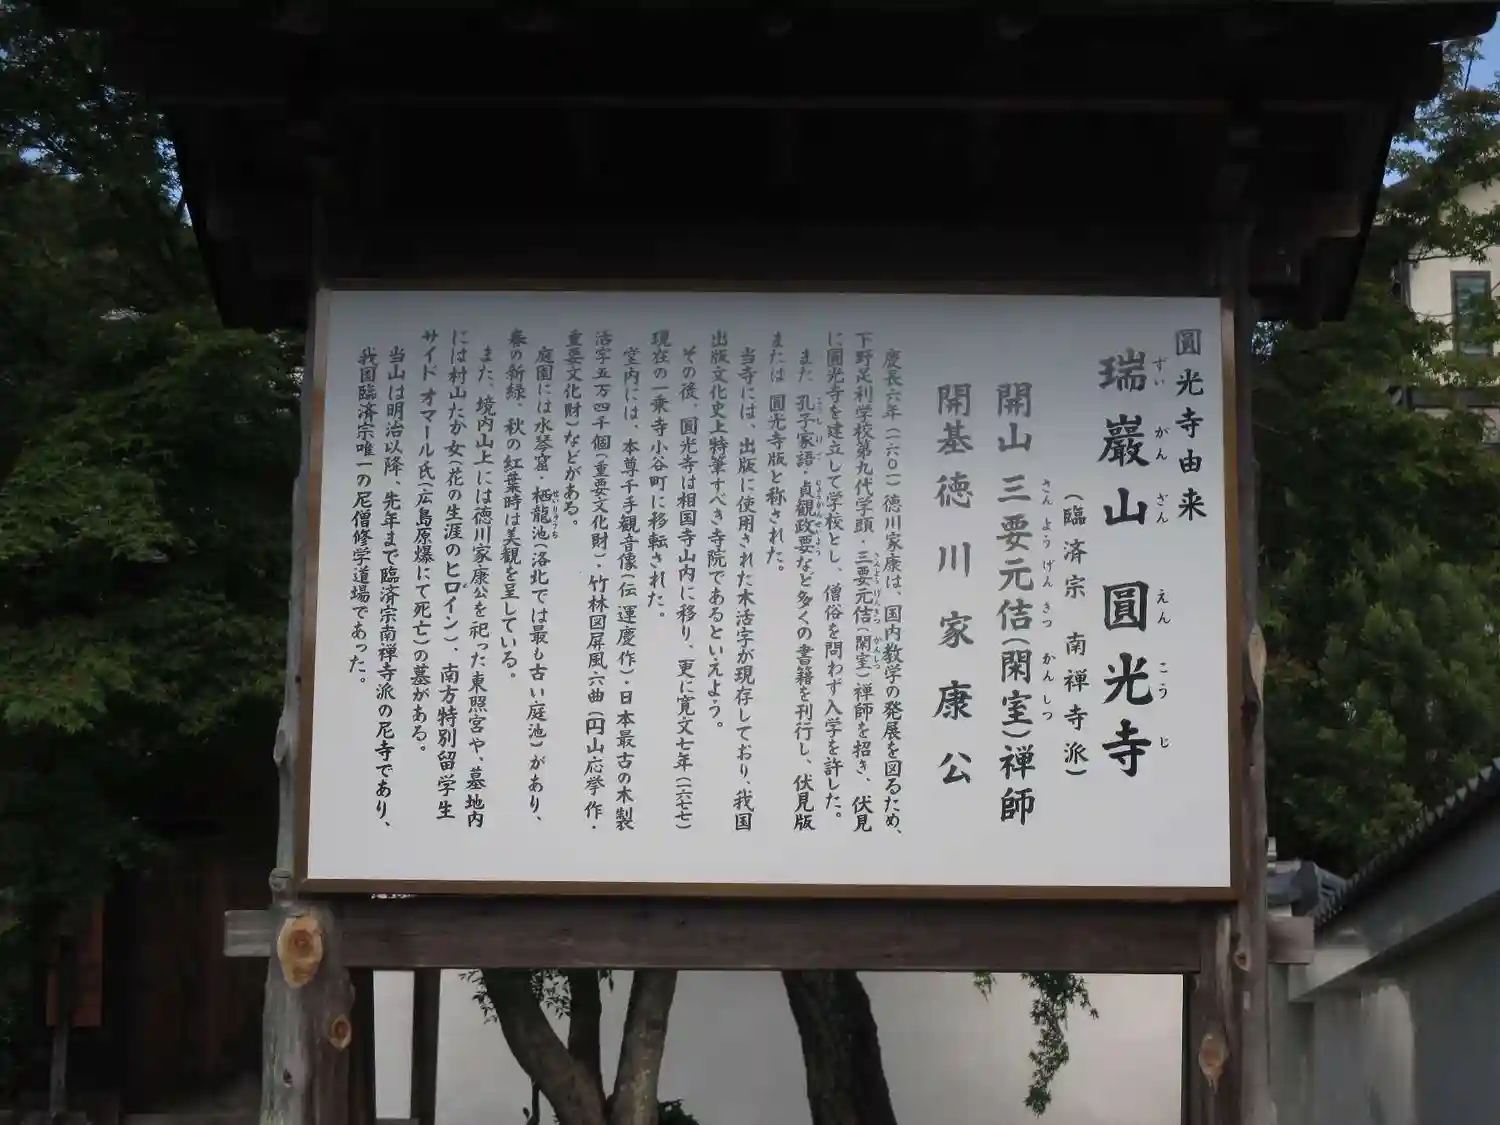 圓光寺由来
瑞巖山 圓光寺
ずい がん ざん えん こう じ
(臨済宗 南禅寺派)
開山 三要元佶(閑室)禅師
さん よう げん きつ かん しつ
開基 徳川家康公
慶長六年(一六〇一)徳川家康は、国内教学の発展を図るため、
下野足利学校第九代学頭・三要元佶(閑室)禅師を招き、伏見
さんようげんきつ かんしつ
に圓光寺を建立して学校とし、僧俗を問わず入学を許した。
また 孔子家語・貞観政要など多くの書籍を刊行し、伏見版
こうしけご じょうがんせいよう
または 圓光寺版と称された。
当寺には、出版に使用された木活字が現存しており、我国
出版文化史上特筆すべき寺院であるといえよう。
その後、圓光寺は相国寺山内に移り、更に寛文七年(一六七七)
現在の一乗寺小谷町に移転された。
堂内には、本尊千手観音像(伝 運慶作)・日本最古の木製
活字五万四千個(重要文化財)・竹林図屏風六曲(円山応挙作・
重要文化財)などがある。
庭園には水琴窟・栖龍池(洛北では最も古い庭池)があり、
せいりゅうち
春の新緑、秋の紅葉時は美観を呈している。
また、境内山上には徳川家康公を祀った東照宮や、墓地内
には村山たか女(花の生涯のヒロイン)、南方特別留学生
サイド オマール氏(広島原爆にて死亡)の墓がある。
当山は明治以降、先年まで臨済宗南禅寺派の尼寺であり、
我国臨済宗唯一の尼僧修学道場であった。